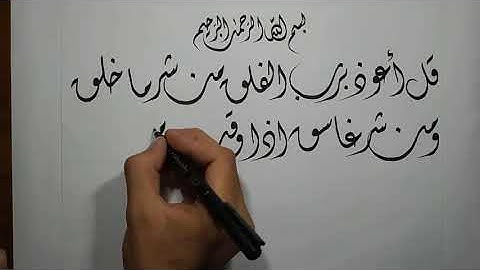 بسم الله الرحمن الرحيم
قل أعوذ برب الفلق من شر ما خلق
ومن شر غاسق اذا وقب